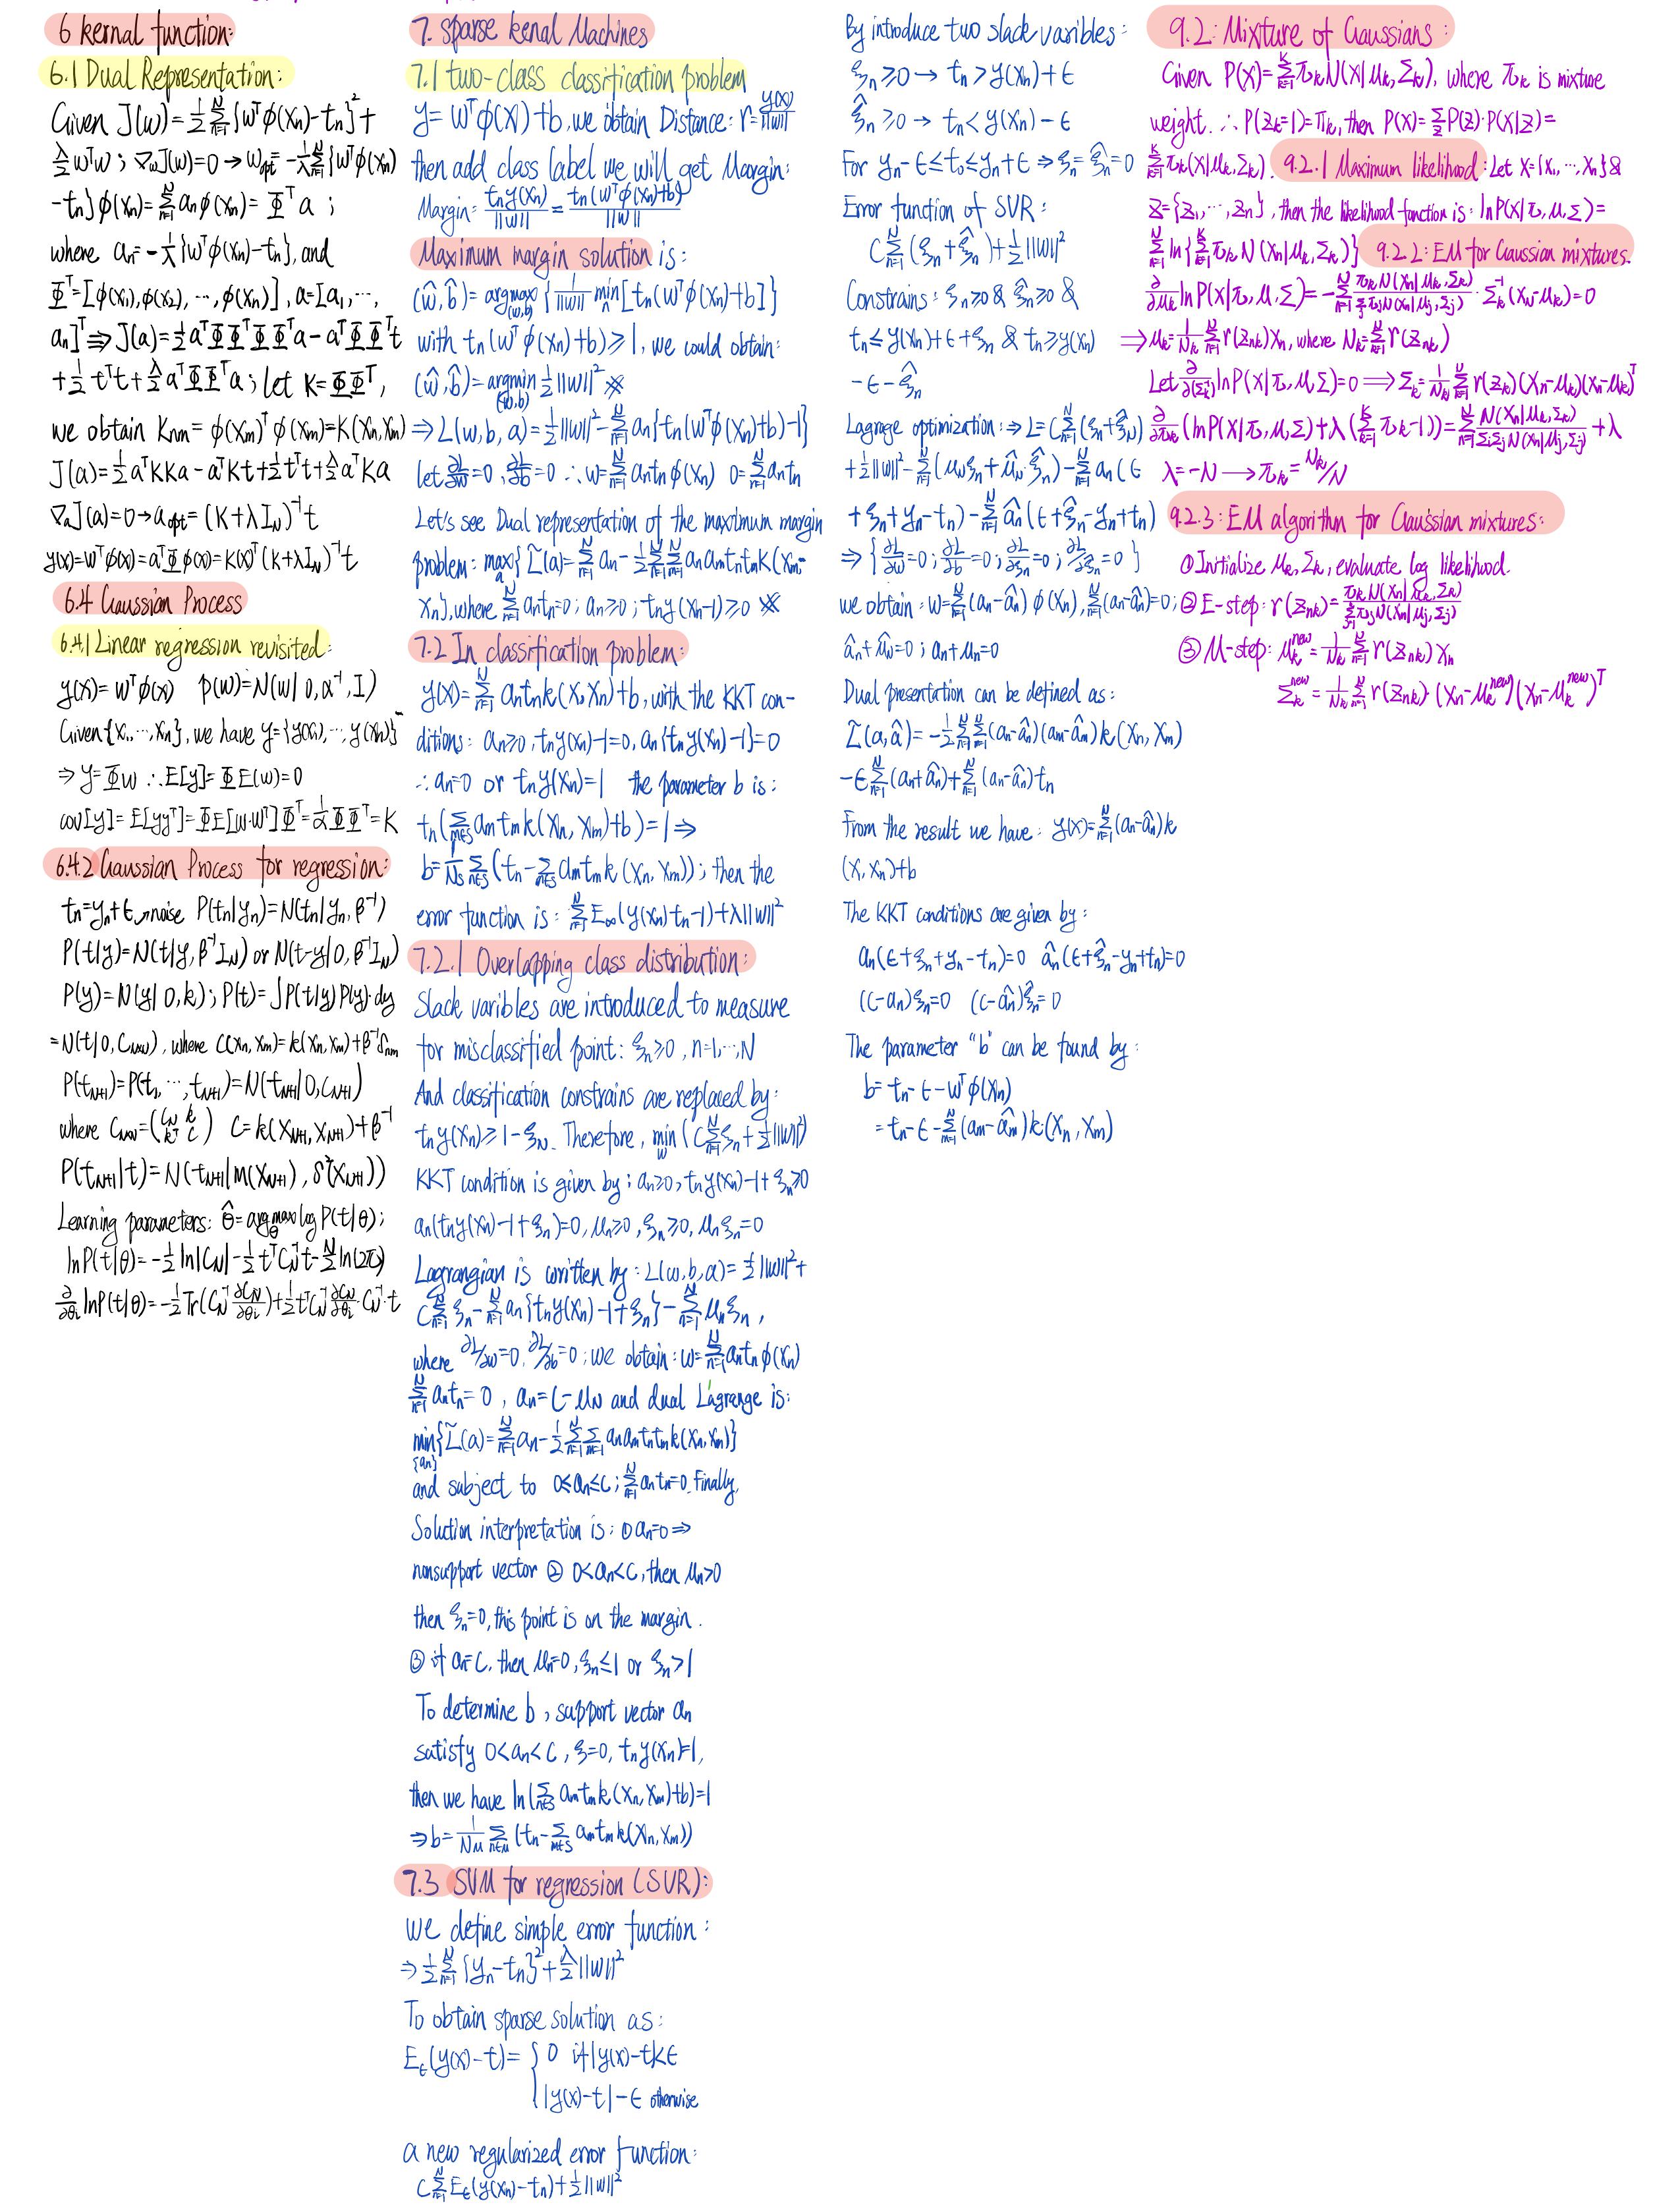 6 kernal function:
6.1 Dual Representation:
Given J(w)=½∑ₙ₌₁ᴺ{wᵀϕ(xₙ)-tₙ}²+
λ/2 wᵀw ; ∇wJ(w)=0 → w_opt=-1/λ∑ₙ₌₁ᴺ{wᵀϕ(xₙ)
-tₙ}ϕ(xₙ)=∑ₙ₌₁ᴺaₙϕ(xₙ)=Φᵀa ;
where aₙ=-1/λ{wᵀϕ(xₙ)-tₙ}, and
Φᵀ=[ϕ(x₁),ϕ(x₂),⋯,ϕ(xₙ)], a=[a₁,⋯,
aₙ]ᵀ⇒J(a)=½aᵀΦΦᵀΦΦᵀa-aᵀΦΦᵀt
+½tᵀt+λ/2aᵀΦΦᵀa ; let K=ΦΦᵀ,
we obtain Knm=ϕ(xₘ)ᵀϕ(xₘ)=K(xₙ,xₘ)
J(a)=½aᵀKKa-aᵀKt+½tᵀt+λ/2aᵀKa
∇aJ(a)=0→a_opt=(K+λI_N)⁻¹t
y(x)=wᵀϕ(x)=aᵀΦϕ(x)=K(x)ᵀ(K+λI_N)⁻¹t
6.4 Gaussian Process
6.4.1 Linear regression revisited:
y(x)=wᵀϕ(x) p(w)=N(w|0,α⁻¹,I)
Given{x₁,⋯,xₙ}, we have y={y(x₁),⋯,y(xₙ)}ᵀ
⇒y=Φw ∴E[y]=ΦE(w)=0
cov[y]=E[yyᵀ]=ΦE[w·wᵀ]Φᵀ=1/αΦΦᵀ=K
6.4.2 Gaussian Process for regression:
tₙ=yₙ+ϵ→noise P(tₙ|yₙ)=N(tₙ|yₙ,β⁻¹)
P(t|y)=N(t|y,β⁻¹I_N) or N(t-y|0,β⁻¹I_N)
P(y)=N(y|0,k); P(t)=∫P(t|y)P(y)·dy
=N(t|0,C_N×N), where C(xₙ,xₘ)=k(xₙ,xₘ)+β⁻¹δnm
P(t_N+1)=P(t₁,⋯,t_N+1)=N(t_N+1|0,C_N+1)
where C_N×N=(C_N k / kᵀ c) C=k(x_N+1,x_N+1)+β⁻¹
P(t_N+1|t)=N(t_N+1|m(x_N+1),δ²(x_N+1))
Learning parameters: θ̂=argmax_θ logP(t|θ);
lnP(t|θ)=-½ln|C_N|-½tᵀC_N⁻¹t-N/2 ln(2π)
∂/∂θᵢ lnP(t|θ)=-½Tr(C_N⁻¹ ∂C_N/∂θᵢ)+½tᵀC_N⁻¹ ∂C_N/∂θᵢ·C_N⁻¹·t
7. sparse kenal Machines
7.1 two-class classification problem
y=wᵀϕ(x)+b, we obtain Distance: r=y(x)/||w||
then add class label we will get Margin:
Margin: tₙy(xₙ)/||w||=tₙ(wᵀϕ(xₙ)+b)/||w||
Maximum margin solution is:
(ŵ,b̂)=argmax_(w,b){1/||w|| min_n[tₙ(wᵀϕ(xₙ)+b]}
with tₙ(wᵀϕ(xₙ)+b)≥1, we could obtain:
(ŵ,b̂)=argmin_(w,b) ½||w||² ※
⇒L(w,b,a)=½||w||²-∑ₙ₌₁ᴺaₙ{tₙ(wᵀϕ(xₙ)+b)-1}
let ∂L/∂w=0, ∂L/∂b=0 ∴w=∑ₙ₌₁ᴺaₙtₙϕ(xₙ) 0=∑ₙ₌₁ᴺaₙtₙ
Let's see Dual representation of the maximum margin
problem: max_a{L̃(a)=∑ₙ₌₁ᴺaₙ-½∑ₙ₌₁ᴺ∑ₙ₌₁ᴺaₙaₘtₙtₘK(xₘ,
xₙ}, where ∑ₙ₌₁ᴺaₙtₙ=0; aₙ≥0; tₙy(xₙ-1)≥0 ※
7.2 In classification problem:
y(x)=∑ₙ₌₁ᴺaₙtₙk(x,xₙ)+b, with the KKT con-
ditions: aₙ≥0, tₙy(xₙ)-1=0, aₙ{tₙy(xₙ)-1}=0
∴aₙ=0 or tₙy(xₙ)=1 the parameter b is:
tₙ(∑m∈s aₘtₘk(xₙ,xₘ)+b)=1⇒
b=1/Ns ∑n∈s(tₙ-∑m∈s aₘtₘk(xₙ,xₘ)); then the
error function is: ∑ₙ₌₁ᴺE∞(y(xₙ)tₙ-1)+λ||w||²
7.2.1 Overlapping class distribution:
Slack varibles are introduced to measure
for misclassified point: ξₙ≥0, n=1,⋯,N
And classification constrains are replaced by:
tₙy(xₙ)≥1-ξ_N. Therefore, min_w(C∑ₙ₌₁ᴺξₙ+½||w||²)
KKT condition is given by: aₙ≥0, tₙy(xₙ)-1+ξₙ≥0
aₙ(tₙy(xₙ)-1+ξₙ)=0, μₙ≥0, ξₙ≥0, μₙξₙ=0
Lagrangian is written by: L(w,b,a)=½||w||²+
C∑ₙ₌₁ᴺξₙ-∑ₙ₌₁ᴺaₙ{tₙy(xₙ)-1+ξₙ}-∑ₙ₌₁ᴺμₙξₙ,
where ∂L/∂w=0, ∂L/∂b=0; we obtain: w=∑ₙ₌₁ᴺaₙtₙϕ(xₙ)
∑ₙ₌₁ᴺaₙtₙ=0, aₙ=C-μ_N and dual Lagrange is:
min_{aₙ}{L̃(a)=∑ₙ₌₁ᴺaₙ-½∑ₙ₌₁ᴺ∑ₘ₌₁aₙaₘtₙtₘk(xₙ,xₘ)}
and subject to 0≤aₙ≤C; ∑ₙ₌₁ᴺaₙtₙ=0. Finally,
Solution interpretation is: ①aₙ=0⇒
nonsupport vector ② 0<aₙ<C, then μₙ>0
then ξₙ=0, this point is on the margin.
③ if aₙ=C, then μₙ=0, ξₙ≤1 or ξₙ>1
To determine b, support vector aₙ
satisfy 0<aₙ<C, ξ=0, tₙy(xₙ)=1,
then we have ln(∑n∈s aₘtₘk(xₙ,xₘ)+b)=1
⇒b=1/N_M ∑n∈M(tₙ-∑m∈s aₘtₘk(xₙ,xₘ))
7.3 SVM for regression (SVR):
we define simple error function:
⇒½∑ₙ₌₁ᴺ{yₙ-tₙ}²+λ/2||w||²
To obtain sparse solution as:
Eϵ(y(x)-t)={0 if|y(x)-t|<ϵ
|y(x)-t|-ϵ otherwise
a new regularized error function:
C∑ₙ₌₁ᴺEϵ(y(xₙ)-tₙ)+½||w||²
By introduce two slack varibles:
ξₙ≥0→tₙ>y(xₙ)+ϵ
ξ̂ₙ≥0→tₙ<y(xₙ)-ϵ
For yₙ-ϵ≤tₙ≤yₙ+ϵ⇒ξₙ=ξ̂ₙ=0
Error function of SVR:
C∑ₙ₌₁ᴺ(ξₙ+ξ̂ₙ)+½||w||²
Constrains: ξₙ≥0 & ξ̂ₙ≥0 &
tₙ≤y(xₙ)+ϵ+ξₙ & tₙ≥y(xₙ)
-ϵ-ξ̂ₙ
Lagrage optimization:⇒L=C∑ₙ₌₁ᴺ(ξₙ+ξ̂_N)
+½||w||²-∑ₙ₌₁ᴺ(μ_Nξₙ+μ̂_N·ξ̂ₙ)-∑ₙ₌₁ᴺaₙ(ϵ
+ξₙ+yₙ-tₙ)-∑ₙ₌₁ᴺâₙ(ϵ+ξ̂ₙ-yₙ+tₙ)
⇒{∂L/∂w=0; ∂L/∂b=0; ∂L/∂ξₙ=0; ∂L/∂ξ̂ₙ=0}
we obtain: w=∑ₙ₌₁ᴺ(aₙ-âₙ)ϕ(xₙ), ∑ₙ₌₁ᴺ(aₙ-âₙ)=0;
âₙ+μ̂_N=0; aₙ+μₙ=0
Dual presentation can be defined as:
L̃(a,â)=-½∑ₙ₌₁ᴺ∑ₘ₌₁ᴺ(aₙ-âₙ)(aₘ-âₘ)k(xₙ,xₘ)
-ϵ∑ₙ₌₁ᴺ(aₙ+âₙ)+∑ₙ₌₁ᴺ(aₙ-âₙ)tₙ
From the result we have: y(x)=∑ₙ₌₁ᴺ(aₙ-âₙ)k
(x,xₙ)+b
The KKT conditions are given by:
aₙ(ϵ+ξₙ+yₙ-tₙ)=0 âₙ(ϵ+ξ̂ₙ-yₙ+tₙ)=0
(C-aₙ)ξₙ=0 (C-âₙ)ξ̂ₙ=0
The parameter "b" can be found by:
b=tₙ-ϵ-wᵀϕ(xₙ)
=tₙ-ϵ-∑ₘ₌₁ᴺ(aₘ-âₘ)k(xₙ,xₘ)
9.2: Mixture of Gaussians:
Given P(x)=∑ₖ₌₁ᴷπₖN(x|μₖ,Σₖ), where πₖ is mixture
weight. ∴P(zₖ=1)=πₖ, then P(x)=∑_z P(z)·P(x|z)=
∑ₖ₌₁ᴷπₖ(x|μₖ,Σₖ). 9.2.1 Maximum likelihood: Let X={x₁,⋯,xₙ}&
Z={z₁,⋯,zₙ}, then the likelihood function is: lnP(x|π,μ,Σ)=
∑ₙ₌₁ᴺln{∑ₖ₌₁ᴷπₖN(xₙ|μₖ,Σₖ)} 9.2.2: EM for Gaussian mixtures.
∂/∂μₖ lnP(x|π,μ,Σ)=-∑ₙ₌₁ᴺ πₖN(xₙ|μₖ,Σₖ)/∑ⱼπⱼN(xₙ|μⱼ,Σⱼ)·Σₖ⁻¹(x_N-μₖ)=0
⇒μₖ=1/Nₖ∑ₙ₌₁ᴺr(zₙₖ)xₙ, where Nₖ=∑ₙ₌₁ᴺr(zₙₖ)
Let ∂/∂(Σₖ) lnP(x|π,μ,Σ)=0⟹Σₖ=1/Nₖ∑ₙ₌₁ᴺr(zₖ)(xₙ-μₖ)(xₙ-μₖ)ᵀ
∂/∂πₖ(lnP(x|π,μ,Σ)+λ(∑ₖ₌₁ᴷπₖ-1))=∑ₙ₌₁ᴺN(xₙ|μₖ,Σₖ)/ΣⱼΣⱼN(xₙ|μⱼ,Σⱼ)+λ
λ=-N→πₖ=Nₖ/N
9.2.3: EM algorithm for Gaussian mixtures:
①Initialize μₖ,Σₖ, evaluate log likelihood.
②E-step: r(zₙₖ)=πₖN(xₙ|μₖ,Σₖ)/∑ⱼ₌₁πⱼN(xₙ|μⱼ,Σⱼ)
③M-step: μₖⁿᵉʷ=1/Nₖ∑ₙ₌₁ᴺr(zₙₖ)xₙ
Σₖⁿᵉʷ=1/Nₖ∑ₙ₌₁ᴺr(zₙₖ)·(xₙ-μₖⁿᵉʷ)(xₙ-μₖⁿᵉʷ)ᵀ